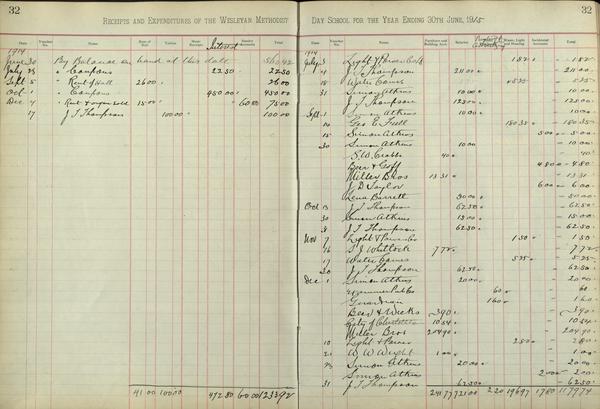 32
RECEIPTS AND EXPENDITURES OF THE WESLEYAN METHODIST
Date.
Voucher No.
Name.
Rent of Hall
Tuition
Interest
Total.
1914
June 30 By Balance on hand at this date
July 25 " Coupons 22 50 22 50
Sept 5 " Rent of Hall 26 00 26 00
Oct 1 " Coupons 450 00 450 00
Dec 4 " Rent & organ sold 15 00 60 00 75 00
17 J T Thompson 100 00 100 00
41 00 100 00 472 50 60 00
DAY SCHOOL FOR THE YEAR ENDING 30TH JUNE, 1915
32
Date.
Voucher No.
Name.
Furniture and Building Acct.
Salaries
Water, Light and Heating
Incidental Account
Total.
1914
July 3 Light & Power Co
4 J T Thompson 211 00 211 00
14 Water Comrs 5 25 5 25
31 Simon Atkins 10 00 10 00
J T Thompson 125 00 125 00
Sept 1 Simon Atkins 10 00 10 00
14 Geo E Full 180 35 180 35
15 Simon Atkins 5 00 5 00
30 Simon Atkins 10 00 10 00
S W Crabbe 40 40
Beer & Goff 4 80 4 80
Miller Bros 13 31 13 31
J D Taylor 6 00 6 00
Lena Barrett
Oct 13 J T Thompson 62 50 62 50
30 Simon Atkins 15 00 15 00
31 J T Thompson 62 50 62 50
Nov 7 Light & Power Co 1 50 1 50
16 Whitlock 7 72 7 72
17 Water Comrs 5 25 5 25
30 J T Thompson 62 50 62 50
Dec 1 Simon Atkins 20 00 20 00
Examiner Pub Co 60 60
Guardian 1 60 1 60
Beer & Weeks 3 90 3 90
City of Charlottetown 10 54 10 54
Miller Bros 204 90 204 90
10 Light & Power 2 50 2 50
21 W W Wright 1 00 1 00
23 Simon Atkins 20 00 20 00
Simon Atkins 2 00 2 00
31 J T Thompson 62 50 62 50
241 77 721 00 2 20 196 97 17 80 1179 74